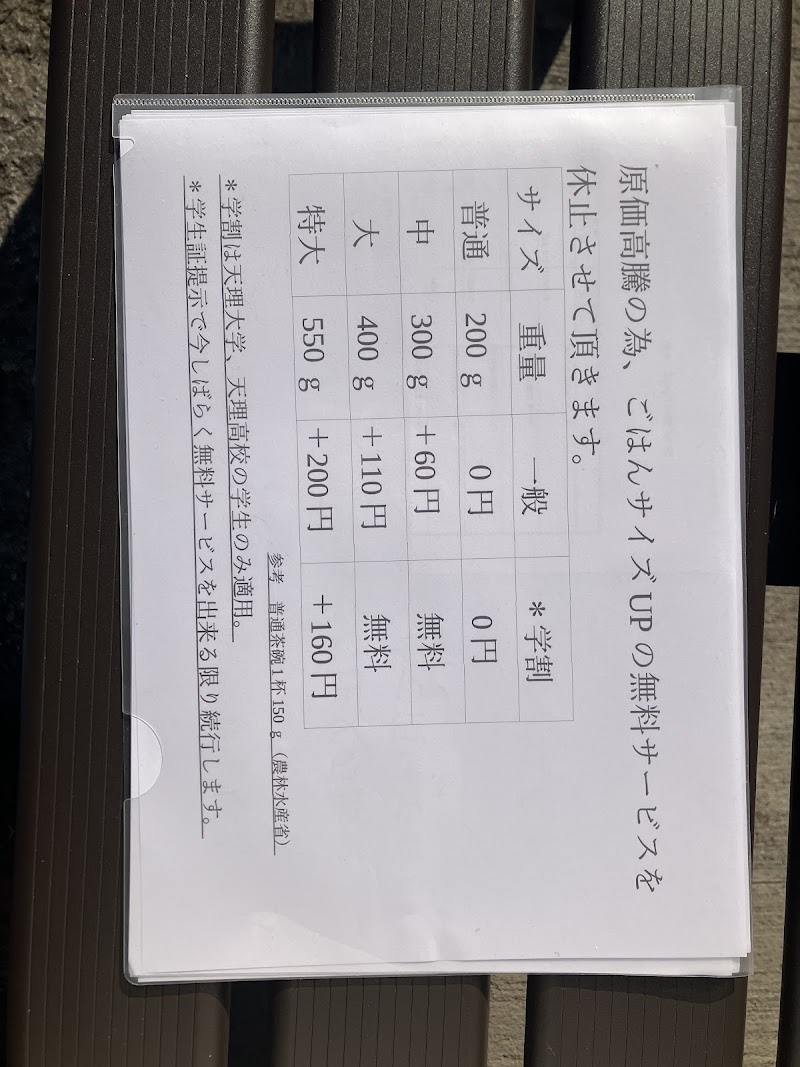 原価高騰の為、ごはんサイズUPの無料サービスを
休止させて頂きます。
サイズ 重量 一般 *学割
普通 200g 0円 0円
中 300g +60円 無料
大 400g +110円 無料
特大 550g +200円 +160円
参考 普通茶碗1杯150g(農林水産省)
*学割は天理大学、天理高校の学生のみ適用。
*学生証提示で今しばらく無料サービスを出来る限り続行します。